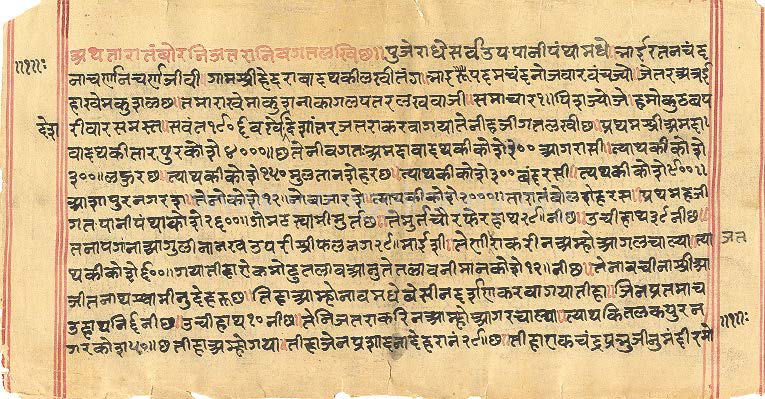 ॥१॥ः अथ तारातंबोरनि जतरानि वगत लखि छ॥ पुजे राधे सर्व उपपानी पंथा मधे॥ भाई रतनचंद
नाचर्णनि चर्ण जीवी गाम श्री हेदराबादथकी लखी भाई पदमचंदनो जवार वंचज्यो॥
हा खेम कुशल छ॥ तमारा खेम कागल पतर लखवाजी॥ समाचार १॥ पिछज्यो जे हमो कुठबप
देश रीवार समस्त॥ सवंत वर्षे देशांतर जतरा करवा गया तेनी हजीगत लखी छ॥ प्रथम श्री अमदा
वादथकी तारपुर कोशे ४०००॥ छ तेनी वगतः अमदावादथकी कोशे ३०० आगरा सी॥ त्याथकी कोशे
३००॥ लाहुर छ॥ त्याथकी कोशे १५० मुलतान शेहर छ॥ त्याथकी कोशे ३०० बंदर सी॥ त्याथकी कोशे
आशापुर नगर छे॥ तेनो कोशे १२ नो बाजार छे॥ त्याथकी कोशे तारातंबोल शेहर सी॥ प्रथम हजी
गत पानी पंथा कोशे २६००॥ गोमटस्वामी मुर्त छ॥ ते मुर्त चोरफेर हाथ २८ नी छ॥ उची हाथ ३८ नी छ॥
तेना पगना आगुली ना नख उपरी श्रीफल नग २८॥ जतराकरीन अम्हे आगल चाल्या॥ त्या
थकी कोशे ६००॥ गया तीहा एक मोटु तलाव आवु ते तलावनी मान कोशे १२॥ नी छ॥ तेना वचीना श्री आ
जीतनाथस्वामीनु देहरु छ॥ तिहा अम्हे नाव मधे बेसीन दर्शण करवा गया तीहा॥ जिन प्रतमा च
उहाथ नी छ॥ उची हाथ १० नी छ॥ तेनि जतरा करिन अम्हे आगर चाल्या॥ त्याथकि तलकपुर न
गर कोश छ तीहा अम्हे गया॥ तीहा जैन प्रशादना देहरा न २८॥ छ॥ तीहा एक चंद्रप्रभुजीनु मंदीर मो ॥१॥ः